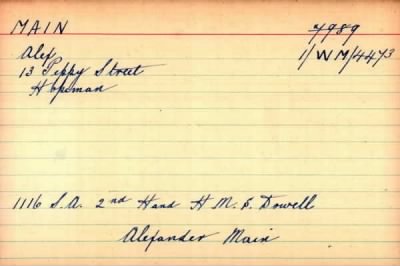 MAIN 7989
Alex 1/WM/4473
13 Peppy Street
Hopeman
1116 S.A. 2nd Hand H.M.S. Dowell
Alexander Main